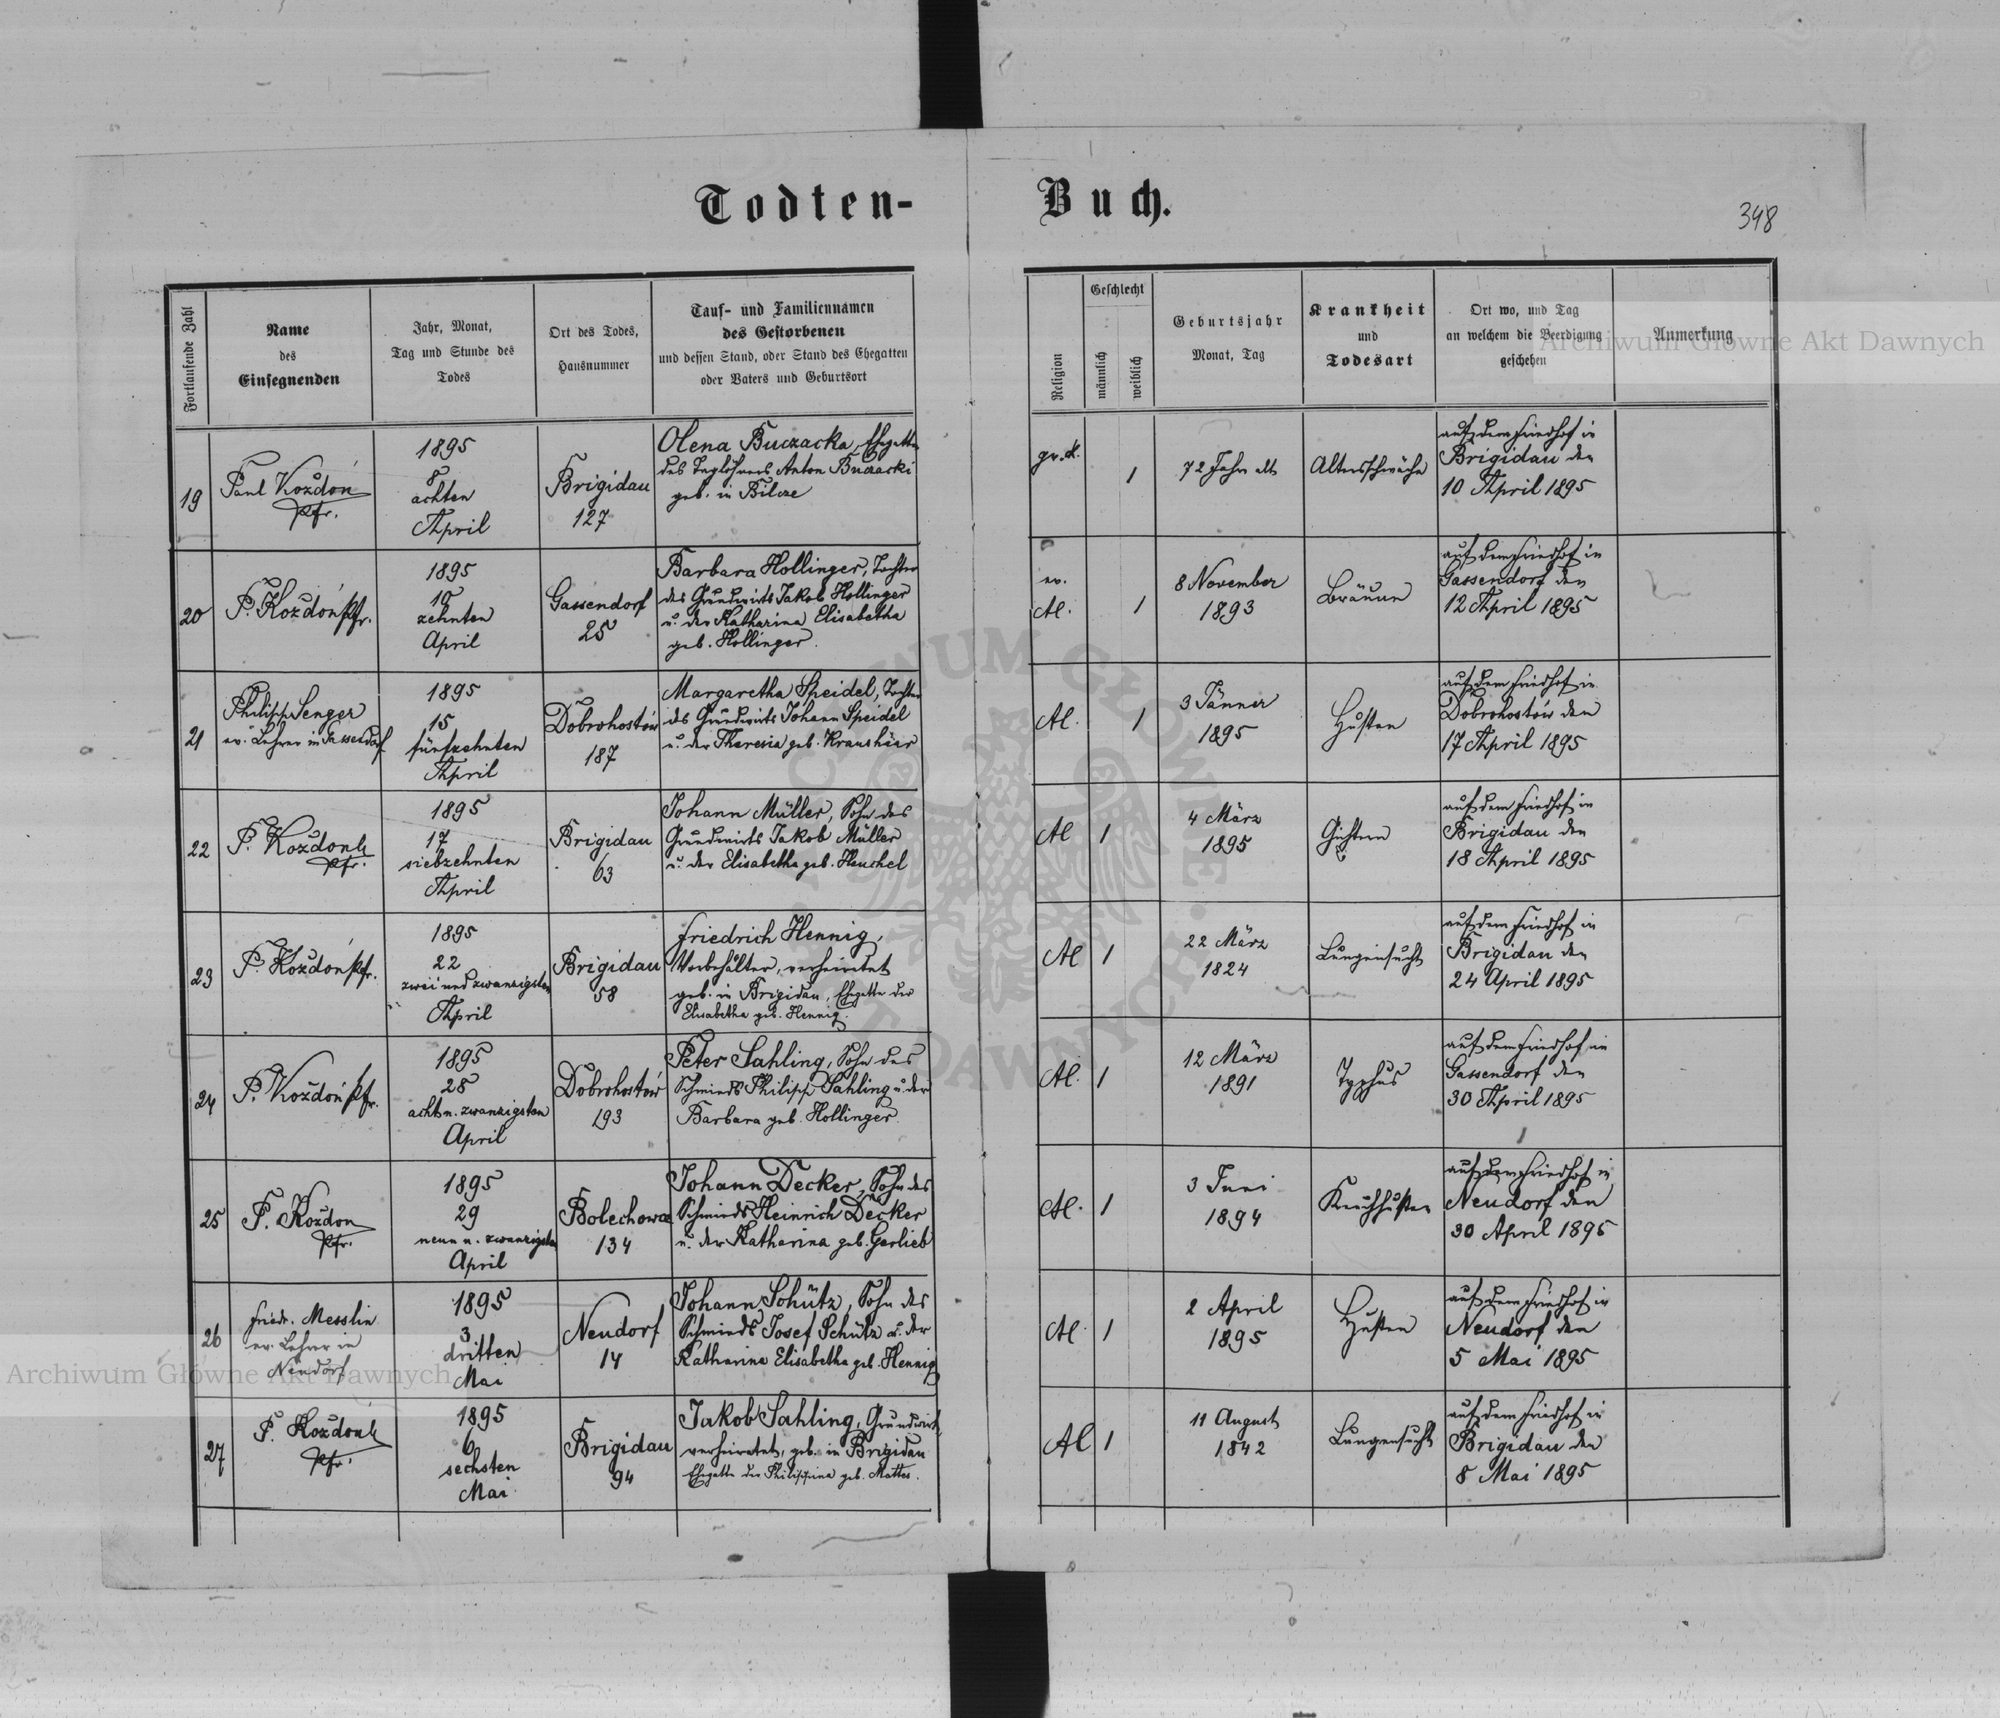 Todten- Buch.
348
Fortlaufende Zahl
Name
des
Einsegnenden
Jahr, Monat,
Tag und Stunde des
Todes
Ort des Todes,
Hausnummer
Tauf- und Familiennamen
des Gestorbenen
und dessen Stand, oder Stand des Ehegatten
oder Vaters und Geburtsort
Religion
Geschlecht
männlich
weiblich
Geburtsjahr
Monat, Tag
Krankheit
und
Todesart
Ort wo, und Tag
an welchem die Beerdigung
geschehen
Anmerkung
Archiwum Główne Akt Dawnych
19
Paul Kozdoń
Pfr.
1895
8
achten
April
Brigidau
127
Olena Buczacka, Ehegattin
des Taglöhners Anton Buczacki
geb. in Bilcze
gr. k.
1
72 Jahre alt
Altersschwäche
auf dem Friedhof in
Brigidau den
10 April 1895
20
P. Kozdoń Pfr.
1895
10
zehnten
April
Gassendorf
25
Barbara Hollinger, Tochter
des Grundwirts Jakob Hollinger
u. der Katharina Elisabetha
geb. Hollinger.
ev.
AC.
1
8 November
1893
Bräune
auf dem Friedhof in
Gassendorf den
12 April 1895
21
Philipp Senger
ev. Lehrer in Gassendorf
1895
15
fünfzehnten
April
Dobrohostów
187
Margaretha Speidel, Tochter
des Grundwirts Johann Speidel
u. der Theresia geb.
AC.
1
3 Jänner
1895
Husten
auf dem Friedhof in
Dobrohostów den
17 April 1895
22
P. Kozdoń
Pfr.
1895
17
siebzehnten
April
Brigidau
63
Johann Müller, Sohn des
Grundwirts Jakob Müller
u. der Elisabetha geb. Henchel
AC
1
4 März
1895
Gichtern
auf dem Friedhof in
Brigidau den
18 April 1895
23
P. Kozdoń Pfr.
1895
22
zwei und zwanzigsten
April
Brigidau
58
Friedrich Hennig,
Vorbehälter, verheiratet
geb. in Brigidau, Ehegatte der
Elisabetha geb. Hennig.
AC
1
22 März
1824
Lungensucht
auf dem Friedhof in
Brigidau den
24 April 1895
24
P. Kozdoń Pfr.
1895
28
acht u. zwanzigsten
April
Dobrohostów
193
Peter Sahling, Sohn des
Schmieds Philipp Sahling u. der
Barbara geb. Hollinger.
AC.
1
12 März
1891
Typhus
auf dem Friedhof in
Gassendorf den
30 April 1895
25
P. Kozdon
Pfr.
1895
29
neun u. zwanzigsten
April
Bolechowce
134
Johann Decker, Sohn des
Schmieds Heinrich Decker
u. der Katharina geb. Gerlieb
AC.
1
3 Juni
1894
Keuchhusten
auf dem Friedhof in
Neudorf den
30 April 1895
26
Friedr. Messlin
ev. Lehrer in
Neudorf
1895
3
dritten
Mai
Neudorf
14
Johann Schütz, Sohn des
Schmieds Josef Schütz u. der
Katharina Elisabetha geb. Hennig
AC.
1
2 April
1895
Husten
auf dem Friedhof in
Neudorf den
5 Mai 1895
27
P. Kozdoń
Pfr.
1895
6
sechsten
Mai
Brigidau
94
Jakob Sahling, Grundwirt,
verheiratet, geb. in Brigidau
Ehegatte der Philippina geb. Mattes.
AC
1
11 August
1842
Lungensucht
auf dem Friedhof in
Brigidau den
8 Mai 1895
Archiwum Główne Akt Dawnych
ARCHIWUM GŁÓWNE AKT DAWNYCH